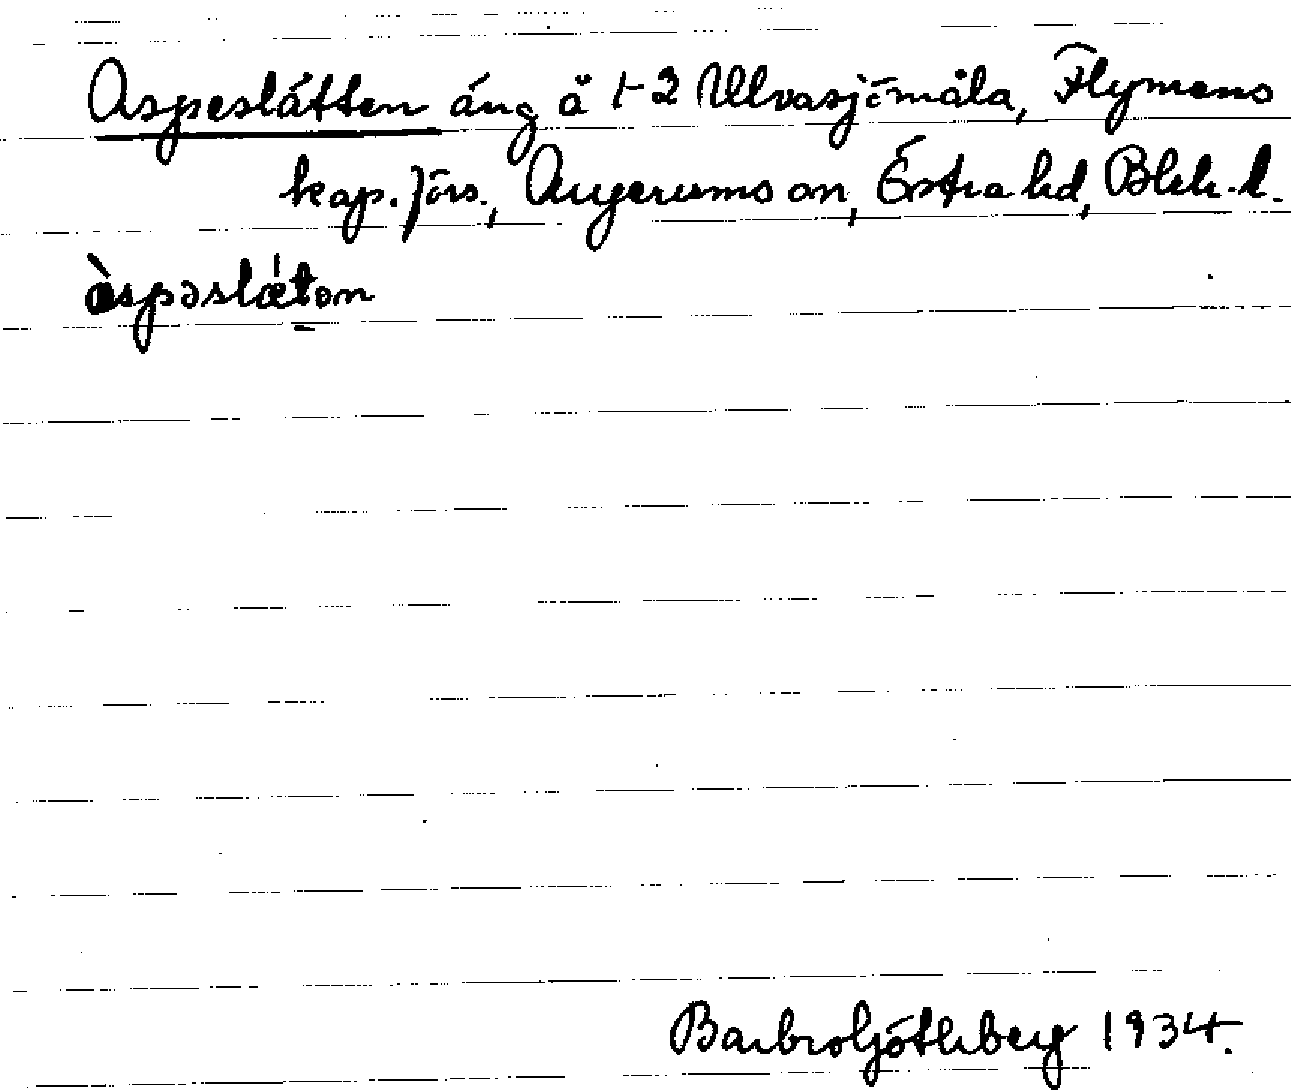 Aspeslätten äng å 1-2 Ulvasjömåla, Flymens
kap. förs., Augerums sn, Östra hd, Blek. l.
àspəslǽtən
Barbro Göthberg 1934.